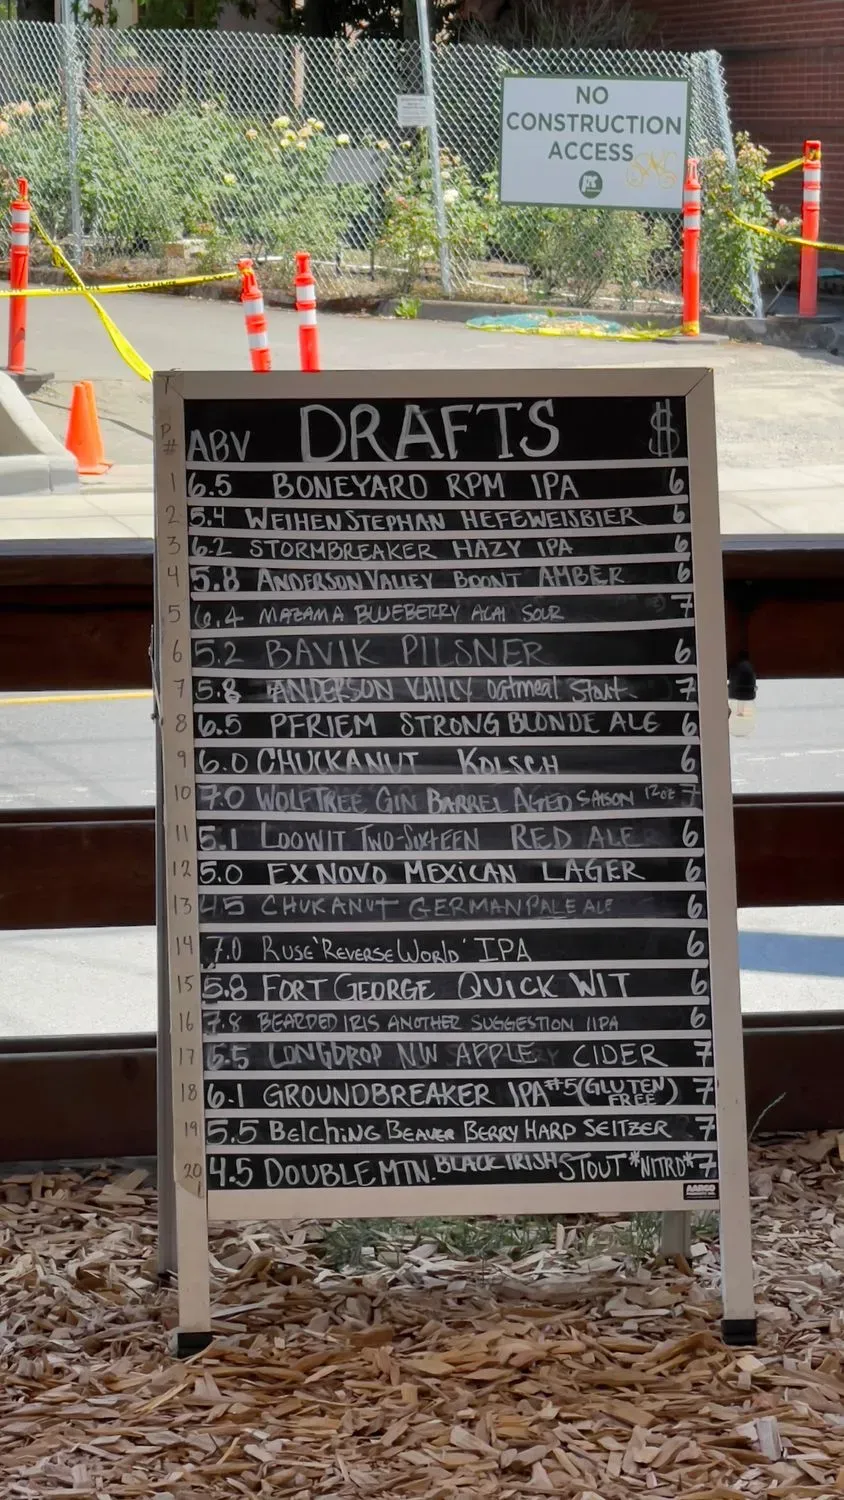 NO
CONSTRUCTION
ACCESS
CAUTION
P# ABV DRAFTS $
1 6.5 BONEYARD RPM IPA 6
2 5.4 WEIHENSTEPHAN HEFEWEISBIER 6
3 6.2 STORMBREAKER HAZY IPA 6
4 5.8 ANDERSON VALLEY BOONT AMBER 6
5 6.4 MAZAMA BLUEBERRY ACAI SOUR 7
6 5.2 BAVIK PILSNER 6
7 5.8 ANDERSON VALLEY Oatmeal Stout 7
8 6.5 PFRIEM STRONG BLONDE ALE 6
9 6.0 CHUCKANUT KOLSCH 6
10 7.0 WOLFTREE GIN BARREL AGED SAISON 12oz 7
11 5.1 LOOWIT TWO-SIXTEEN RED ALE 6
12 5.0 EX NOVO MEXICAN LAGER 6
13 4.5 CHUKANUT GERMAN PALE ALE 6
14 7.0 RUSE 'REVERSE WORLD' IPA 6
15 5.8 FORT GEORGE QUICK WIT 6
16 7.8 BEARDED IRIS ANOTHER SUGGESTION IIPA 6
17 6.5 LONGDROP NW APPLE CIDER 7
18 6.1 GROUNDBREAKER IPA #5 (GLUTEN FREE) 7
19 5.5 BELCHING BEAVER BERRY HARD SELTZER 7
20 4.5 DOUBLE MTN. BLACK IRISH STOUT *NITRO* 7
AARCO